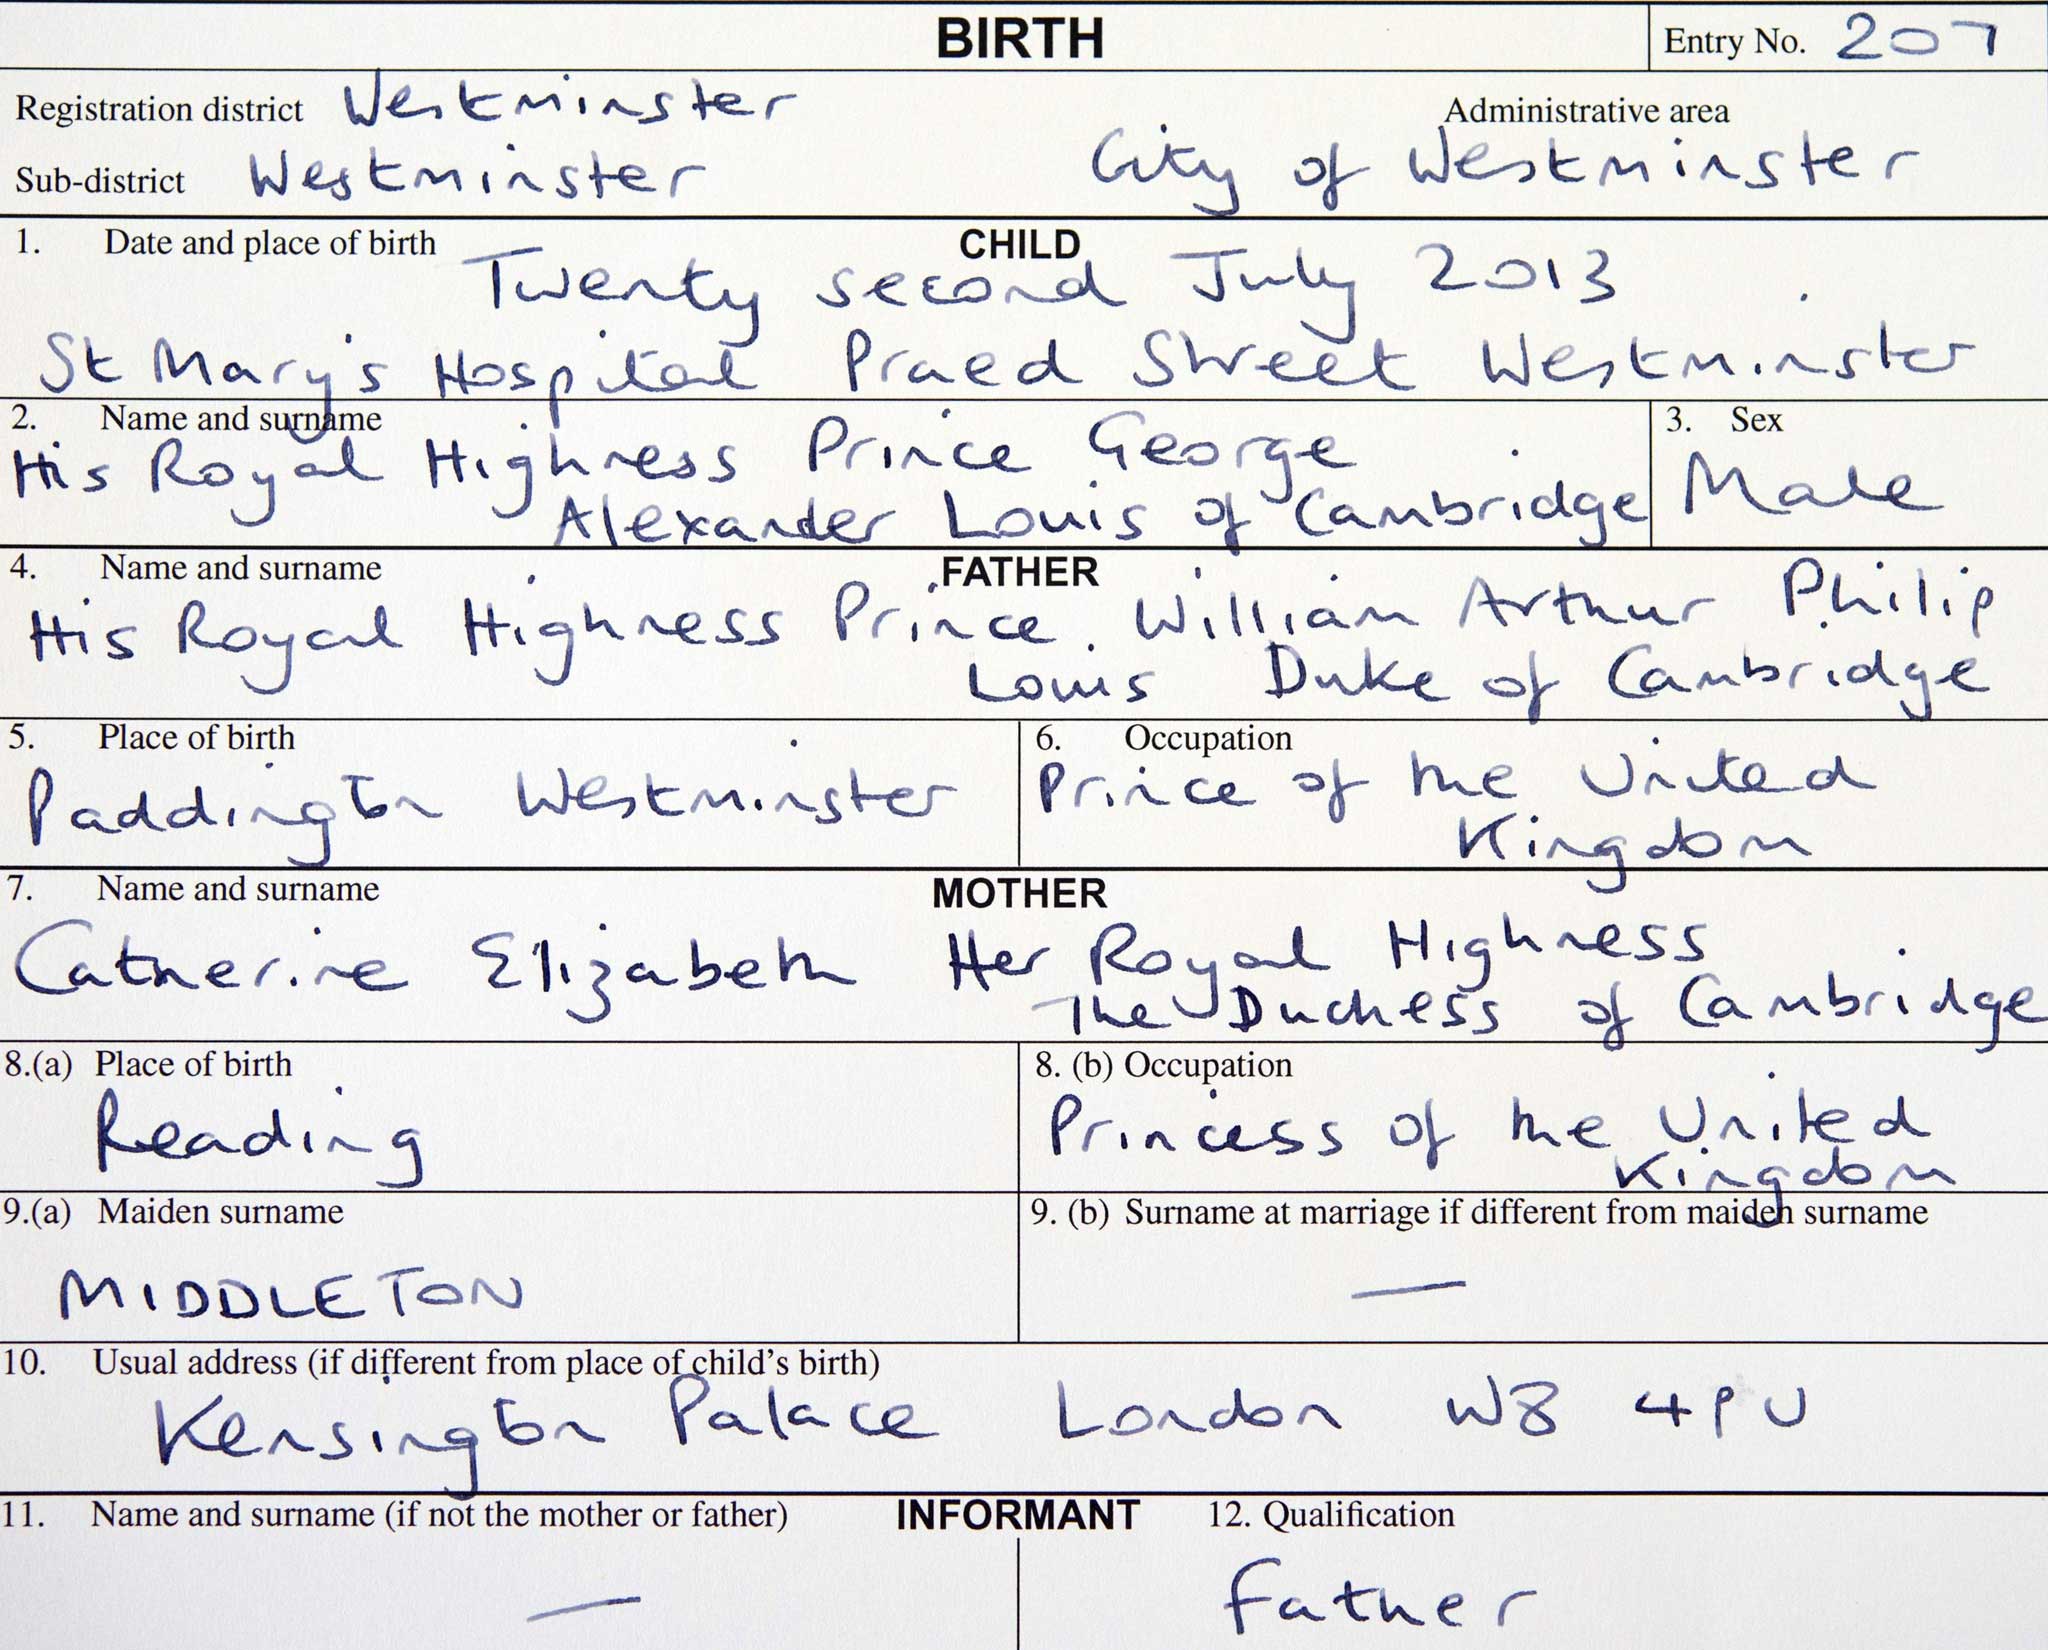 BIRTH
Entry No. 207
Registration district Westminster
Administrative area
Sub-district Westminster
City of Westminster
1. Date and place of birth
CHILD
Twenty second July 2013
St Mary's Hospital Praed Street Westminster
2. Name and surname
3. Sex
His Royal Highness Prince George
Alexander Louis of Cambridge
Male
4. Name and surname
FATHER
His Royal Highness Prince William Arthur Philip
Louis Duke of Cambridge
5. Place of birth
6. Occupation
Paddington Westminster
Prince of the United
Kingdom
7. Name and surname
MOTHER
Catherine Elizabeth Her Royal Highness
The Duchess of Cambridge
8.(a) Place of birth
8. (b) Occupation
Reading
Princess of the United
Kingdom
9.(a) Maiden surname
9. (b) Surname at marriage if different from maiden surname
MIDDLETON
—
10. Usual address (if different from place of child's birth)
Kensington Palace London W8 4PU
11. Name and surname (if not the mother or father)
INFORMANT
12. Qualification
—
Father